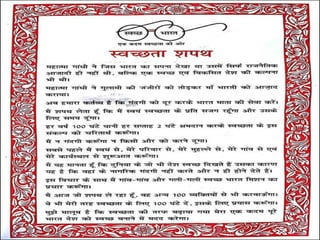 स्वच्छ भारत
एक कदम स्वच्छता की ओर
स्वच्छता शपथ
महात्मा गांधी ने जिस भारत का सपना देखा था उसमें सिर्फ राजनैतिक
आजादी ही नहीं थी, बल्कि एक स्वच्छ एवं विकसित देश की कल्पना
भी थी।
महात्मा गांधी ने गुलामी की जंजीरों को तोड़कर माँ भारती को आजाद
कराया।
अब हमारा कर्तव्य है कि गंदगी को दूर करके भारत माता की सेवा करें।
मैं शपथ लेता हूँ कि मैं स्वयं स्वच्छता के प्रति सजग रहूँगा और उसके
लिए समय दूंगा।
हर वर्ष 100 घंटे यानी हर सप्ताह 2 घंटे श्रमदान करके स्वच्छता के इस
संकल्प को चरितार्थ करूँगा।
मैं न गंदगी करूँगा न किसी और को करने दूंगा।
सबसे पहले मैं स्वयं से, मेरे परिवार से, मेरे मुहल्ले से, मेरे गांव से एवं
मेरे कार्यस्थल से शुरुआत करूँगा।
मैं यह मानता हूँ कि दुनिया के जो भी देश स्वच्छ दिखते हैं उसका कारण
यह है कि वहां के नागरिक गंदगी नहीं करते और न ही होने देते हैं।
इस विचार के साथ मैं गांव-गांव और गली-गली स्वच्छ भारत मिशन का
प्रचार करूँगा।
मैं आज जो शपथ ले रहा हूँ, वह अन्य 100 व्यक्तियों से भी करवाऊँगा।
वे भी मेरी तरह स्वच्छता के लिए 100 घंटे दें, इसके लिए प्रयास करूँगा।
मुझे मालूम है कि स्वच्छता की तरफ बढ़ाया गया मेरा एक कदम पूरे
भारत देश को स्वच्छ बनाने में मदद करेगा।